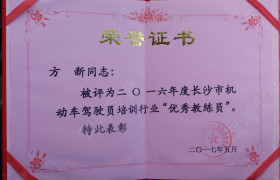 荣誉证书
方 新同志：
被评为二〇一六年度长沙市机
动车驾驶员培训行业“优秀教练员”。
特此表彰
二〇一七年五月